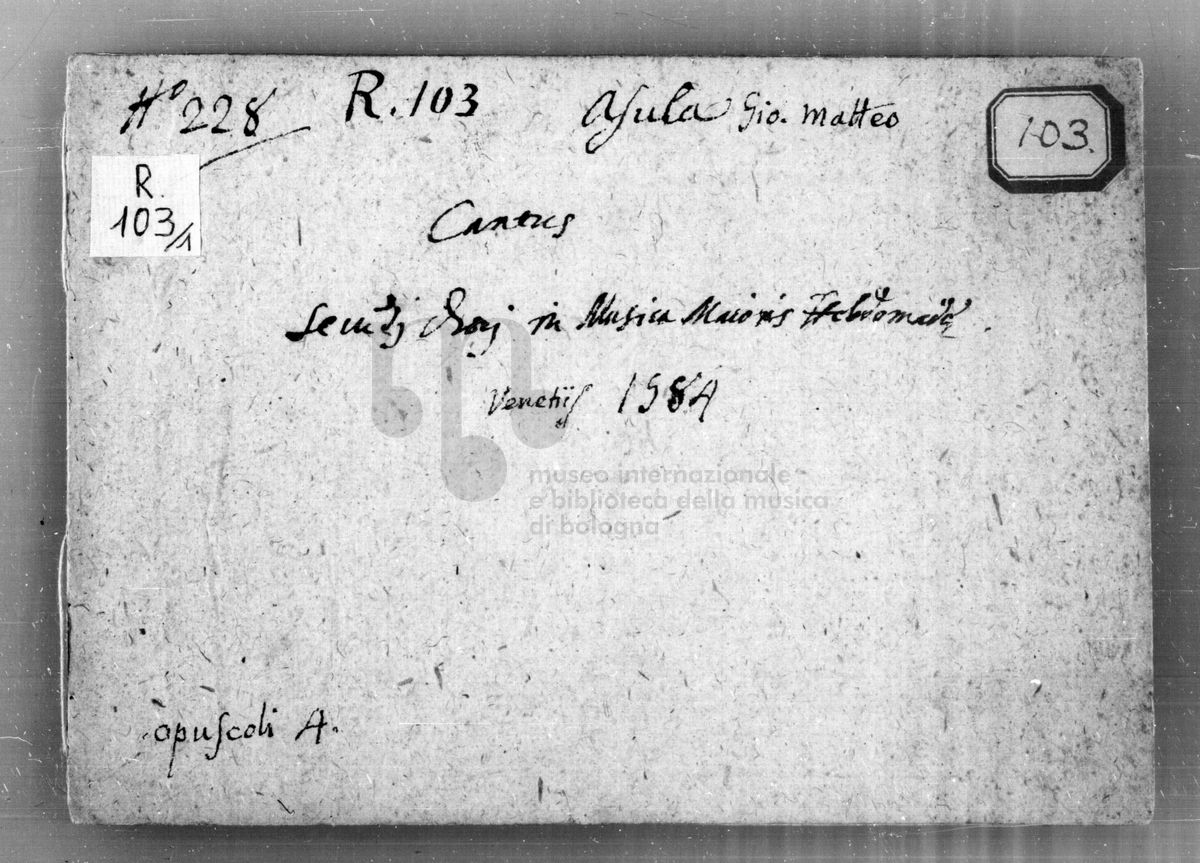 No 228 R.103 Asula Gio. Matteo
103.
R.
103/1
Cantus
Secundi Chorj in Musica Maioris Hebdomadæ.
Venetijs 1584
museo internazionale
e biblioteca della musica
di bologna
opuscoli 4.